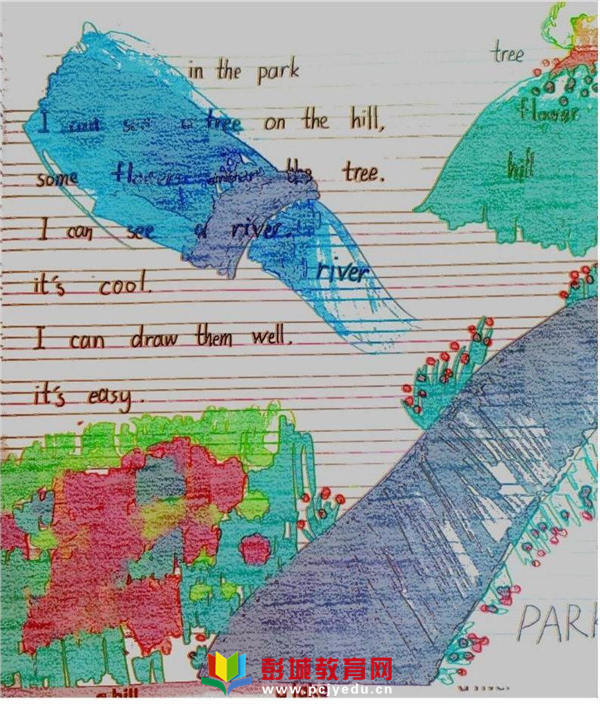 in the park
tree
I can see a tree on the hill,
flower
some flowers the tree.
hill
I can see a river.
river
it's cool.
I can draw them well.
it's easy.
PARK
彭城教育网
www.pcjyedu.cn
a hill